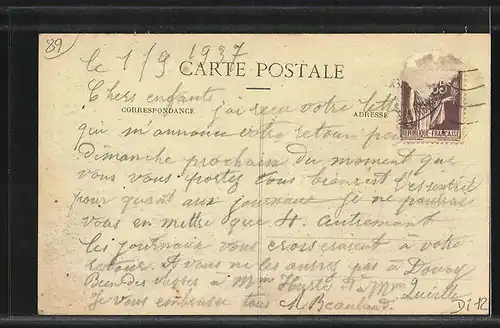 89
le 1/9 1937
CARTE POSTALE
Chers enfants
CORRESPONDANCE
ADRESSE
j'ai reçu votre lettre
qui m'annonce votre retour pour
Dimanche prochain du moment que
vous vous portez tous bien c'est l'essentiel
pour quant aux journaux je ne pourrai
vous en mettre que autrement
les journaux vous croiseraient à votre
retour vous ne les aurez pas à
Bien des choses à Mme & à Mme
Je vous embrasse tous
RÉPUBLIQUE FRANÇAISE
Di 12